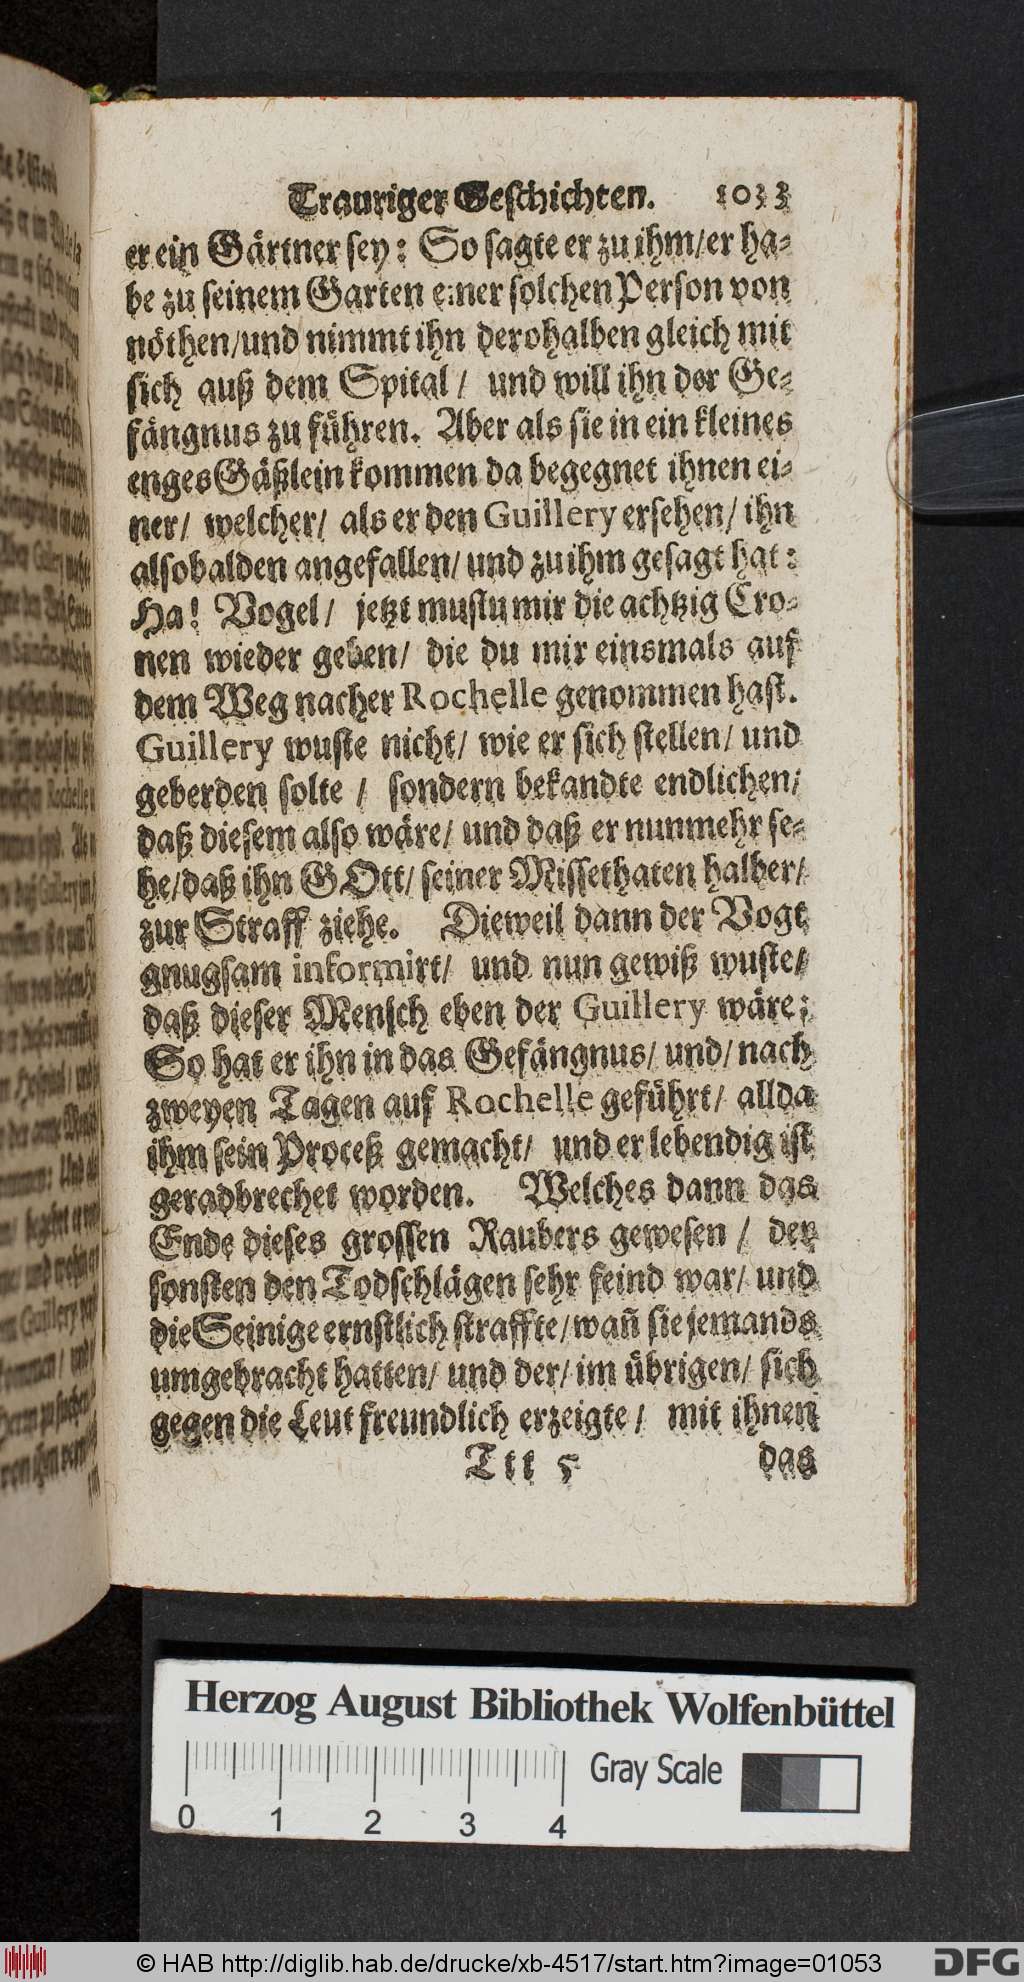 Trauriger Geschichten. 1033
er ein Gärtner sey: So sagte er zu ihm/er ha-
be zu seinem Garten einer solchen Person von
nöthen/und nimmt ihn derohalben gleich mit
sich auß dem Spital/ und will ihn der Ge-
fängnus zu führen. Aber als sie in ein kleines
enges Gäßlein kommen da begegnet ihnen ei-
ner/ welcher/ als er den Guillery ersehen/ ihn
alsobalden angefallen/ und zu ihm gesagt hat:
Ha! Vogel/ jetzt mustu mir die achtzig Cro-
nen wieder geben/ die du mir einsmals auf
dem Weg nacher Rochelle genommen hast.
Guillery wuste nicht/ wie er sich stellen/ und
geberden solte/ sondern bekandte endlichen/
daß diesem also wäre/ und daß er nunmehr se-
he/daß ihn GOtt/ seiner Missethaten halber/
zur Straff ziehe. Dieweil dann der Vogt
gnugsam informirt/ und nun gewiß wuste/
daß dieser Mensch eben der Guillery wäre;
So hat er ihn in das Gefängnus/ und/ nach
zweyen Tagen auf Rochelle geführt/ allda
ihm sein Proceß gemacht/ und er lebendig ist
geradbrechet worden. Welches dann das
Ende dieses grossen Raubers gewesen/ der
sonsten den Todschlägen sehr feind war/ und
die Seinige ernstlich straffte/wañ sie jemands
umgebracht hatten/ und der/ im übrigen/ sich
gegen die Leut freundlich erzeigte/ mit ihnen
Ttt 5 das
Herzog August Bibliothek Wolfenbüttel
Gray Scale
0 1 2 3 4
© HAB http://diglib.hab.de/drucke/xb-4517/start.htm?image=01053
DFG